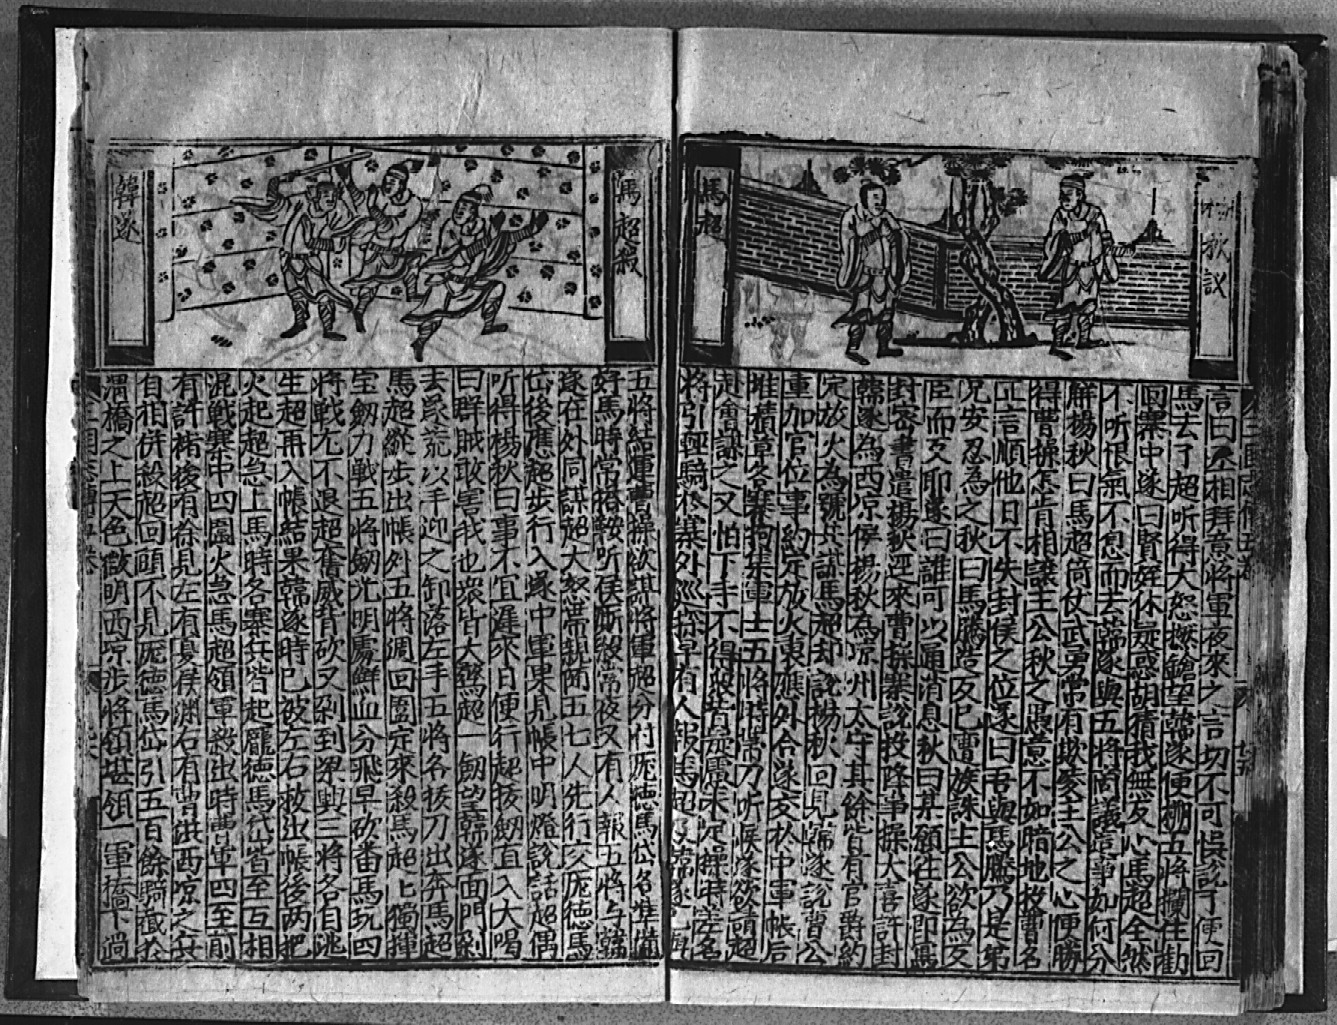 馬超
言曰丞相拜意將軍夜來之言切不可悞說了便回
馬去了超听得大怒撚鎗望韓遂便搠五將攔住勸
回寨中遂曰賢姪休疑惑胡猜我無反心馬超全然
不听恨氣不息而去韓遂與五將商議這事如何分
解楊秋曰馬超筒仗武勇常有欺凌主公之心便勝
得曹操怎肯相讓主公秋之愚意不如暗地投曹名
正言順他日不失封侯之位遂曰吾與馬騰乃是第
兄安忍為之秋曰馬騰造反已曹族誅主公欲為反
臣而交耶遂曰誰可以通消息秋曰某願往遂即寫
封密書遣楊秋逕來曹操寨說投降事操大喜許封
韓遂為西凉侯楊秋為凉州太守其餘皆有官爵約
定放火為號共誅馬超却說楊秋回見韓遂說曹公
重加官位事約定放火裏應外合遂交於中軍帳后
堆積草各寨拘集軍士五將將帶刀听候遂欲請超
赴會謀之又怕下手不得眾皆疑慮未定操時差名
將引輕騎於寨外巡
馬超殺
韓遂
五將結連曹操欲謀將軍超分付庞德馬岱各准備
好馬時常搭鞍听侯厮殺當夜又有人報五將与韓
遂在外同謀超大怒帶親隨五七人先行交庞德馬
岱後應超步行入遂中軍果見帳中明燈說話超偶
听得楊秋曰事不宜遲來日便行超拔劒直入大喝
曰群賊敢害我也眾皆大驚超一劒望韓遂面門剁
去遂荒以手迎之卸落左手五將各拔刀出奔馬超
馬超縱步出帳外五將週回圍定來殺馬超上獨揮
宝劒力戰五將劒光明處鮮血分飛早砍番馬玩四
將戰尤不退超奮威背砍又剁到梁興三將各自逃
生超再入帳結果韓遂時已被左右救出帳後两把
火起超急上馬時各寨兵皆起龐德馬岱皆至互相
混戰寨中四圍火急馬超領軍殺出時曹軍四至前
有許褚後有徐晃左有夏侯渊右有曹洪西凉之兵
自相併殺超回頭不見庞德馬岱引五百餘騎截於
渭橋之上天色微明西凉步將領堪領一軍橋下過